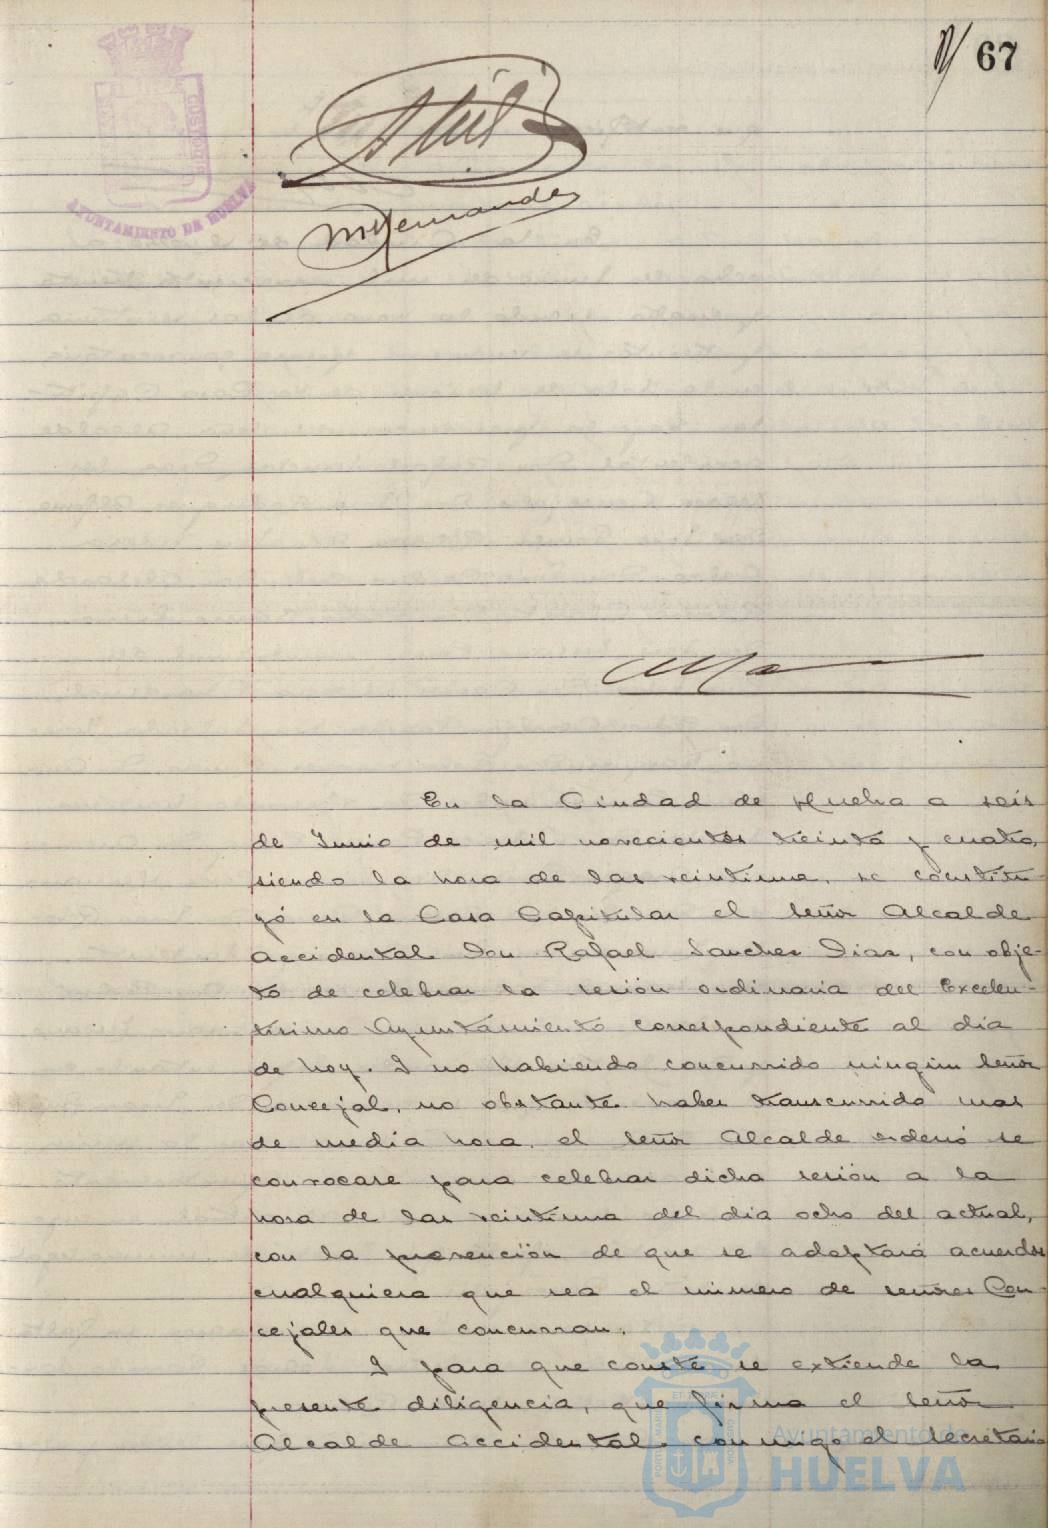 67
AYUNTAMIENTO DE HUELVA
MHernandez
En la Ciudad de Huelva a seis
de Junio de mil novecientos treinta y cuatro,
siendo la hora de las veintiuna, se constitu-
yó en la Casa Capitular el señor Alcalde
accidental Don Rafael Sanchez Diaz, con obje-
to de celebrar la sesión ordinaria del Excelen-
tísimo Ayuntamiento correspondiente al dia
de hoy. I no habiendo concurrido ningún señor
Concejal, no obstante haber transcurrido mas
de media hora, el señor Alcalde ordenó se
convocase para celebrar dicha sesión a la
hora de las veintiuna del dia ocho del actual,
con la prevención de que se adoptará acuerdos
cualquiera que sea el número de señores Con-
cejales que concurran.
I para que conste se extiende la
presente diligencia, que firma el señor
Alcalde accidental conmigo el secretario
Ayuntamiento de
HUELVA